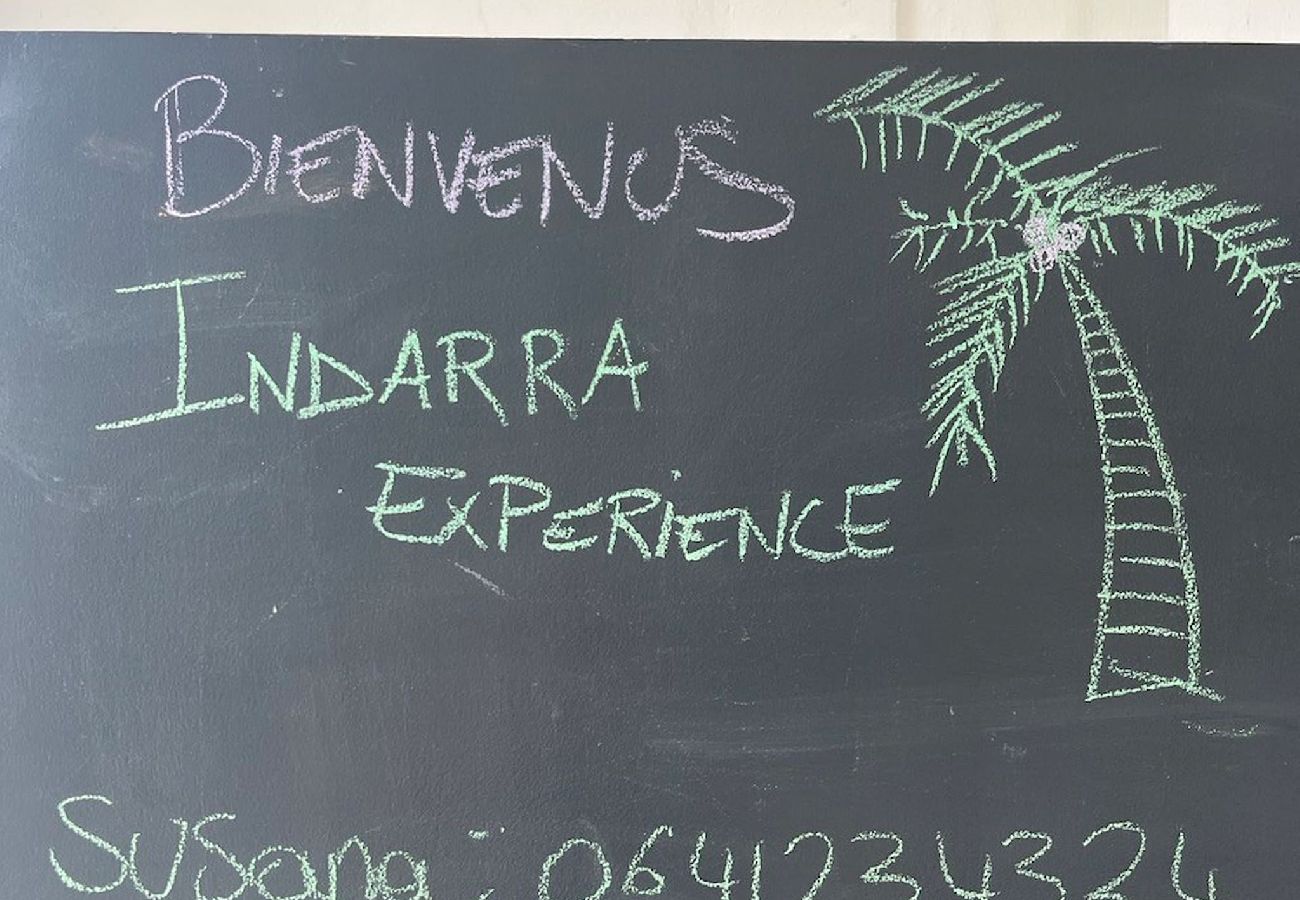 BIENVENUS
INDARRA
EXPERIENCE
Susana : 0641234324